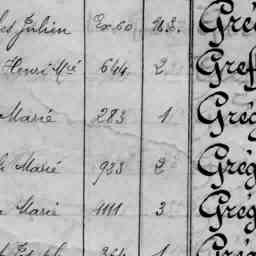 Julien Ex. 60 N.S. Gré
Henri Mie 644 2 Gref
Marie 283 1 Grég
Marie 983 2 Grég
Marie 1111 3 Grég
364 1 Grég